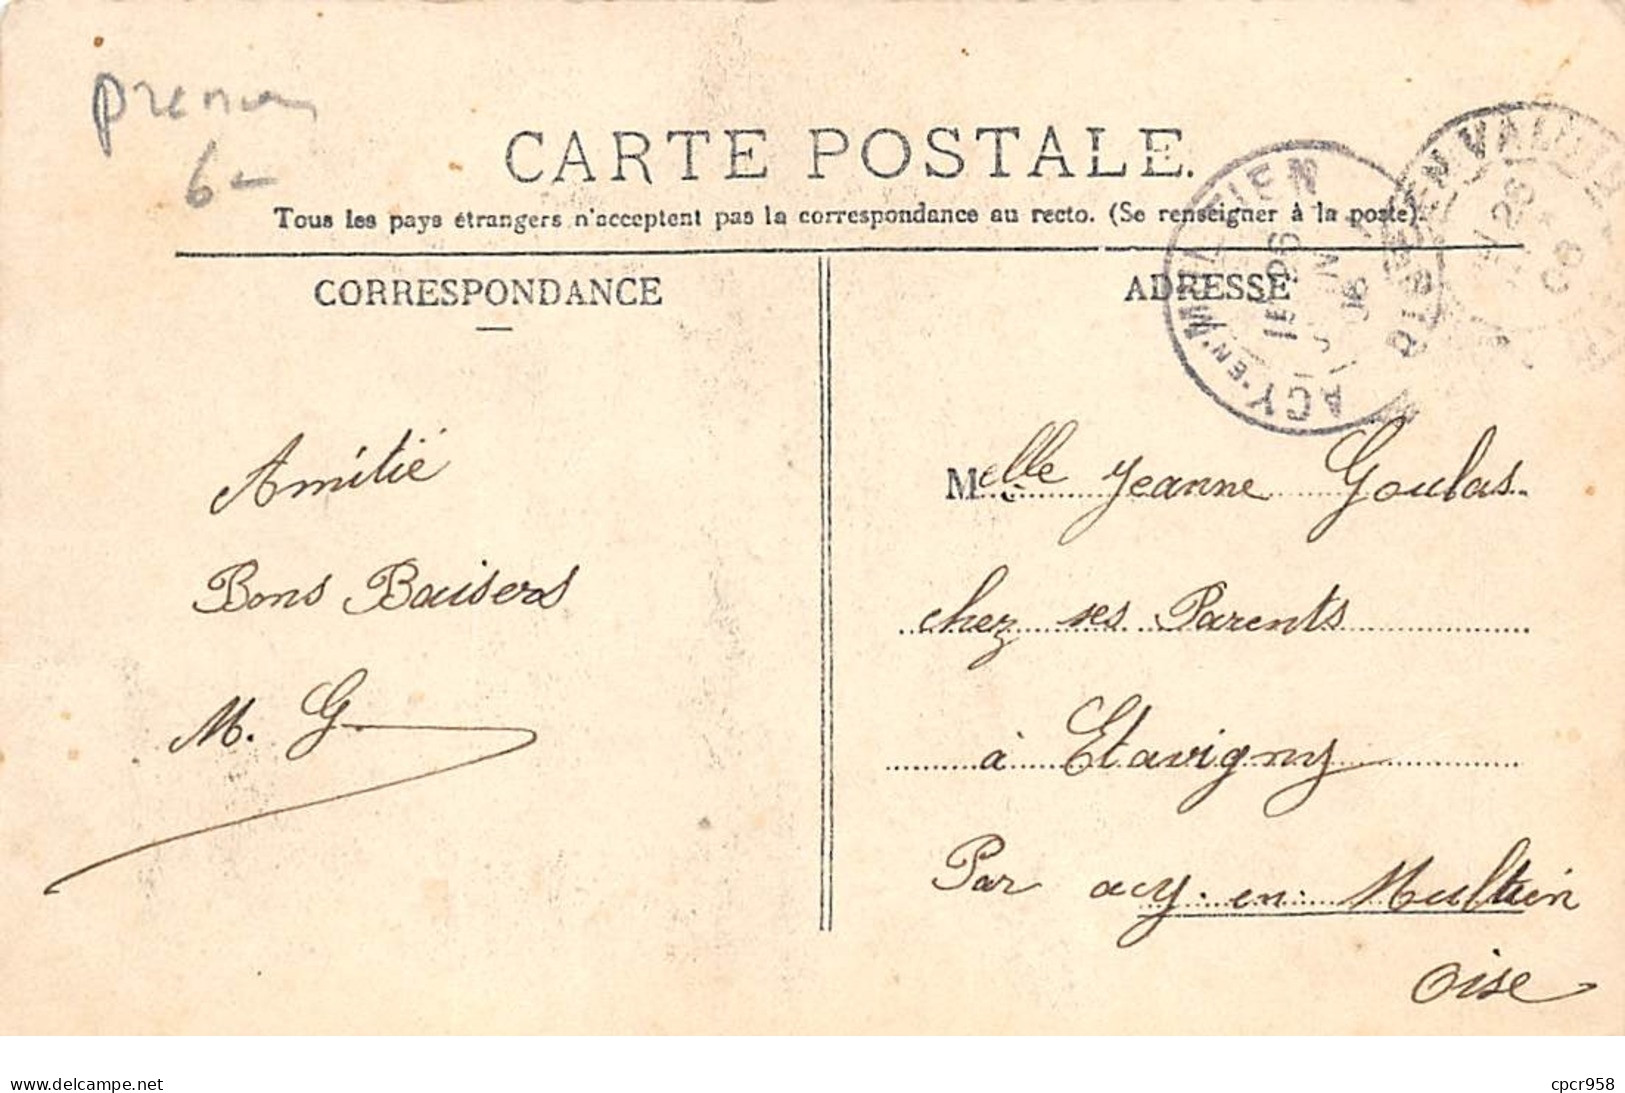 prenom
6-
CARTE POSTALE.
Tous les pays étrangers n'acceptent pas la correspondance au recto. (Se renseigner à la poste).
CORRESPONDANCE
ADRESSE
ACY-EN-MULTIEN
15
26
JUIN
06
BETZ
EN VALOIS
26
06
Amitié
Bons Baisers
M. G.
Melle Jeanne Goulas.
chez ses Parents
à Etavigny
Par acy-en-Multien
Oise
www.delcampe.net
cpcr958